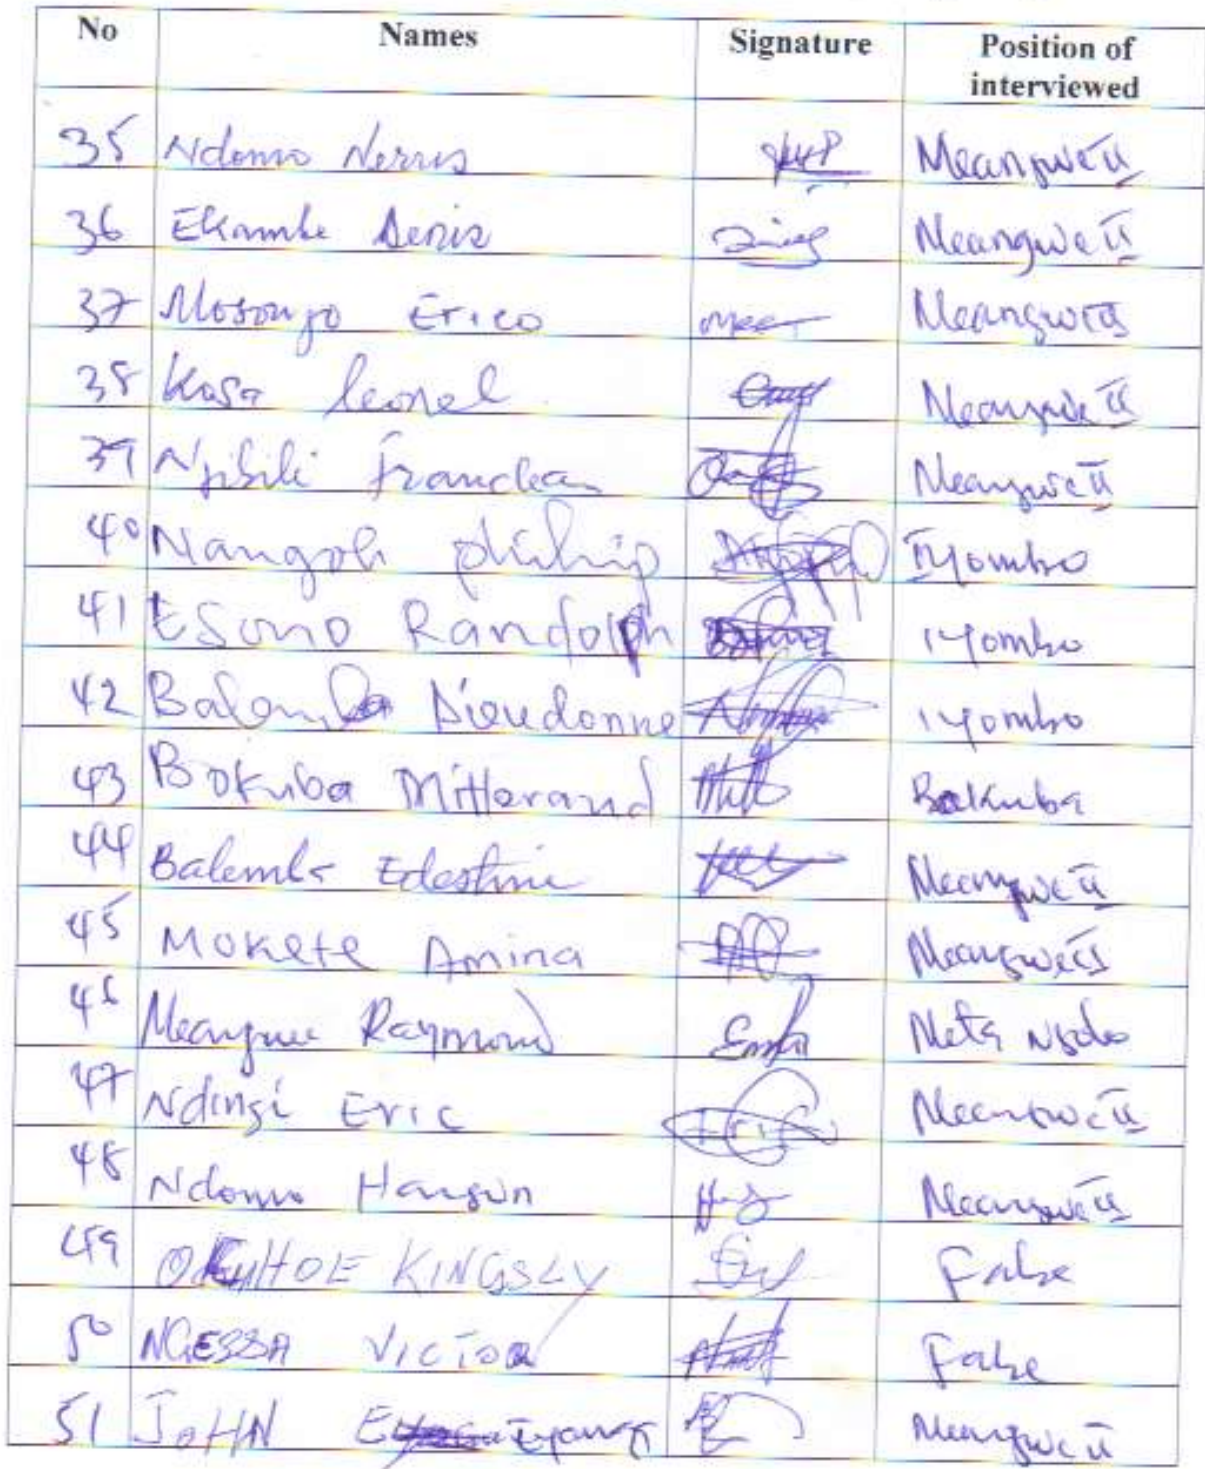 No Names Signature Position of interviewed
35 Ndomo Nerrus Meangwe II
36 Ekambe Denis Meangwe II
37 Mosongo Erico Meangwe II
38 Kosa leonel Meangwe II
39 Njibili Franclean Meangwe II
40 Nangoh philip Iyombo
41 ESOMO Randolph Iyombo
42 Balemba Dieudonne Iyombo
43 Bokuba Mitterand Bakuba
44 Balemba Edestine Meangwe II
45 Mokete Amina Meangwe II
46 Meangwe Raymond Meta
47 Ndingi Eric Meangwe II
48 Ndomo Hangson Meangwe II
49 KINGSLY Fabe
50 NGESSA VICTOR Fabe
51 JOHN Meangwe II